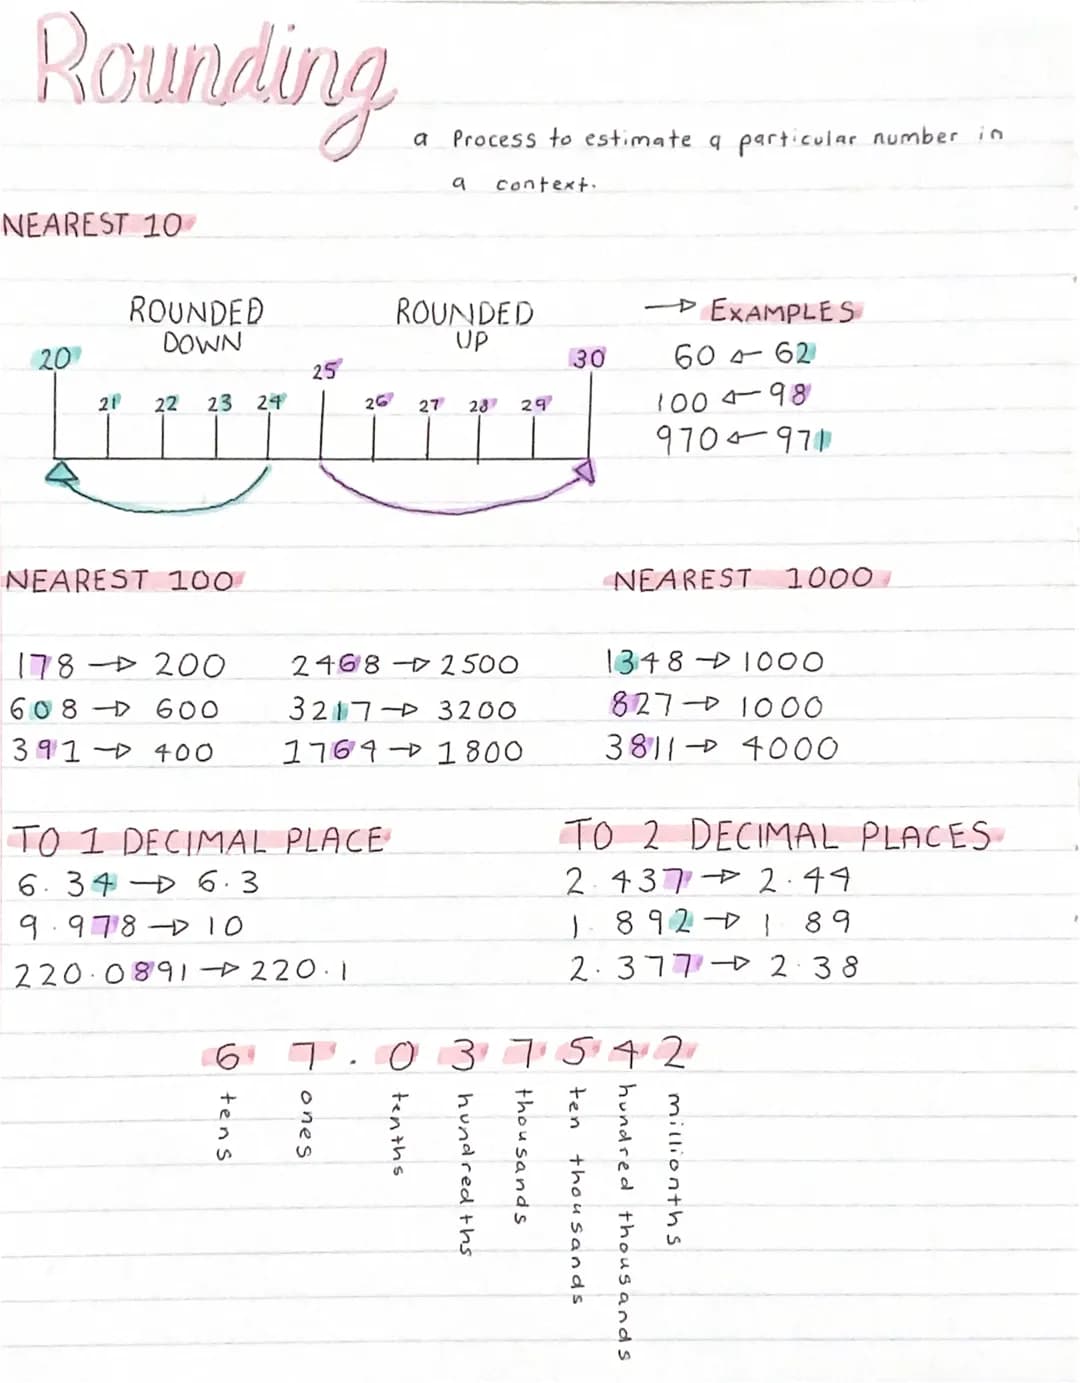 Rounding
a Process to estimate a particular number in
a context.
NEAREST 10
ROUNDED
DOWN
ROUNDED
UP
20 21 22 23 24 25 26 27 28 29 30
→ EXAMPLES
60 ← 62
100 ← 98
970 ← 971
NEAREST 100
178 → 200 2468 → 2500
608 → 600 3217 → 3200
391 → 400 1764 → 1800
NEAREST 1000
1348 → 1000
827 → 1000
3811 → 4000
TO 1 DECIMAL PLACE
6.34 → 6.3
9.978 → 10
220.0891 → 220.1
TO 2 DECIMAL PLACES
2.437 → 2.44
1.892 → 1.89
2.377 → 2.38
67.037542
tens
ones
tenths
hundredths
thousands
ten thousands
hundred thousands
millionths